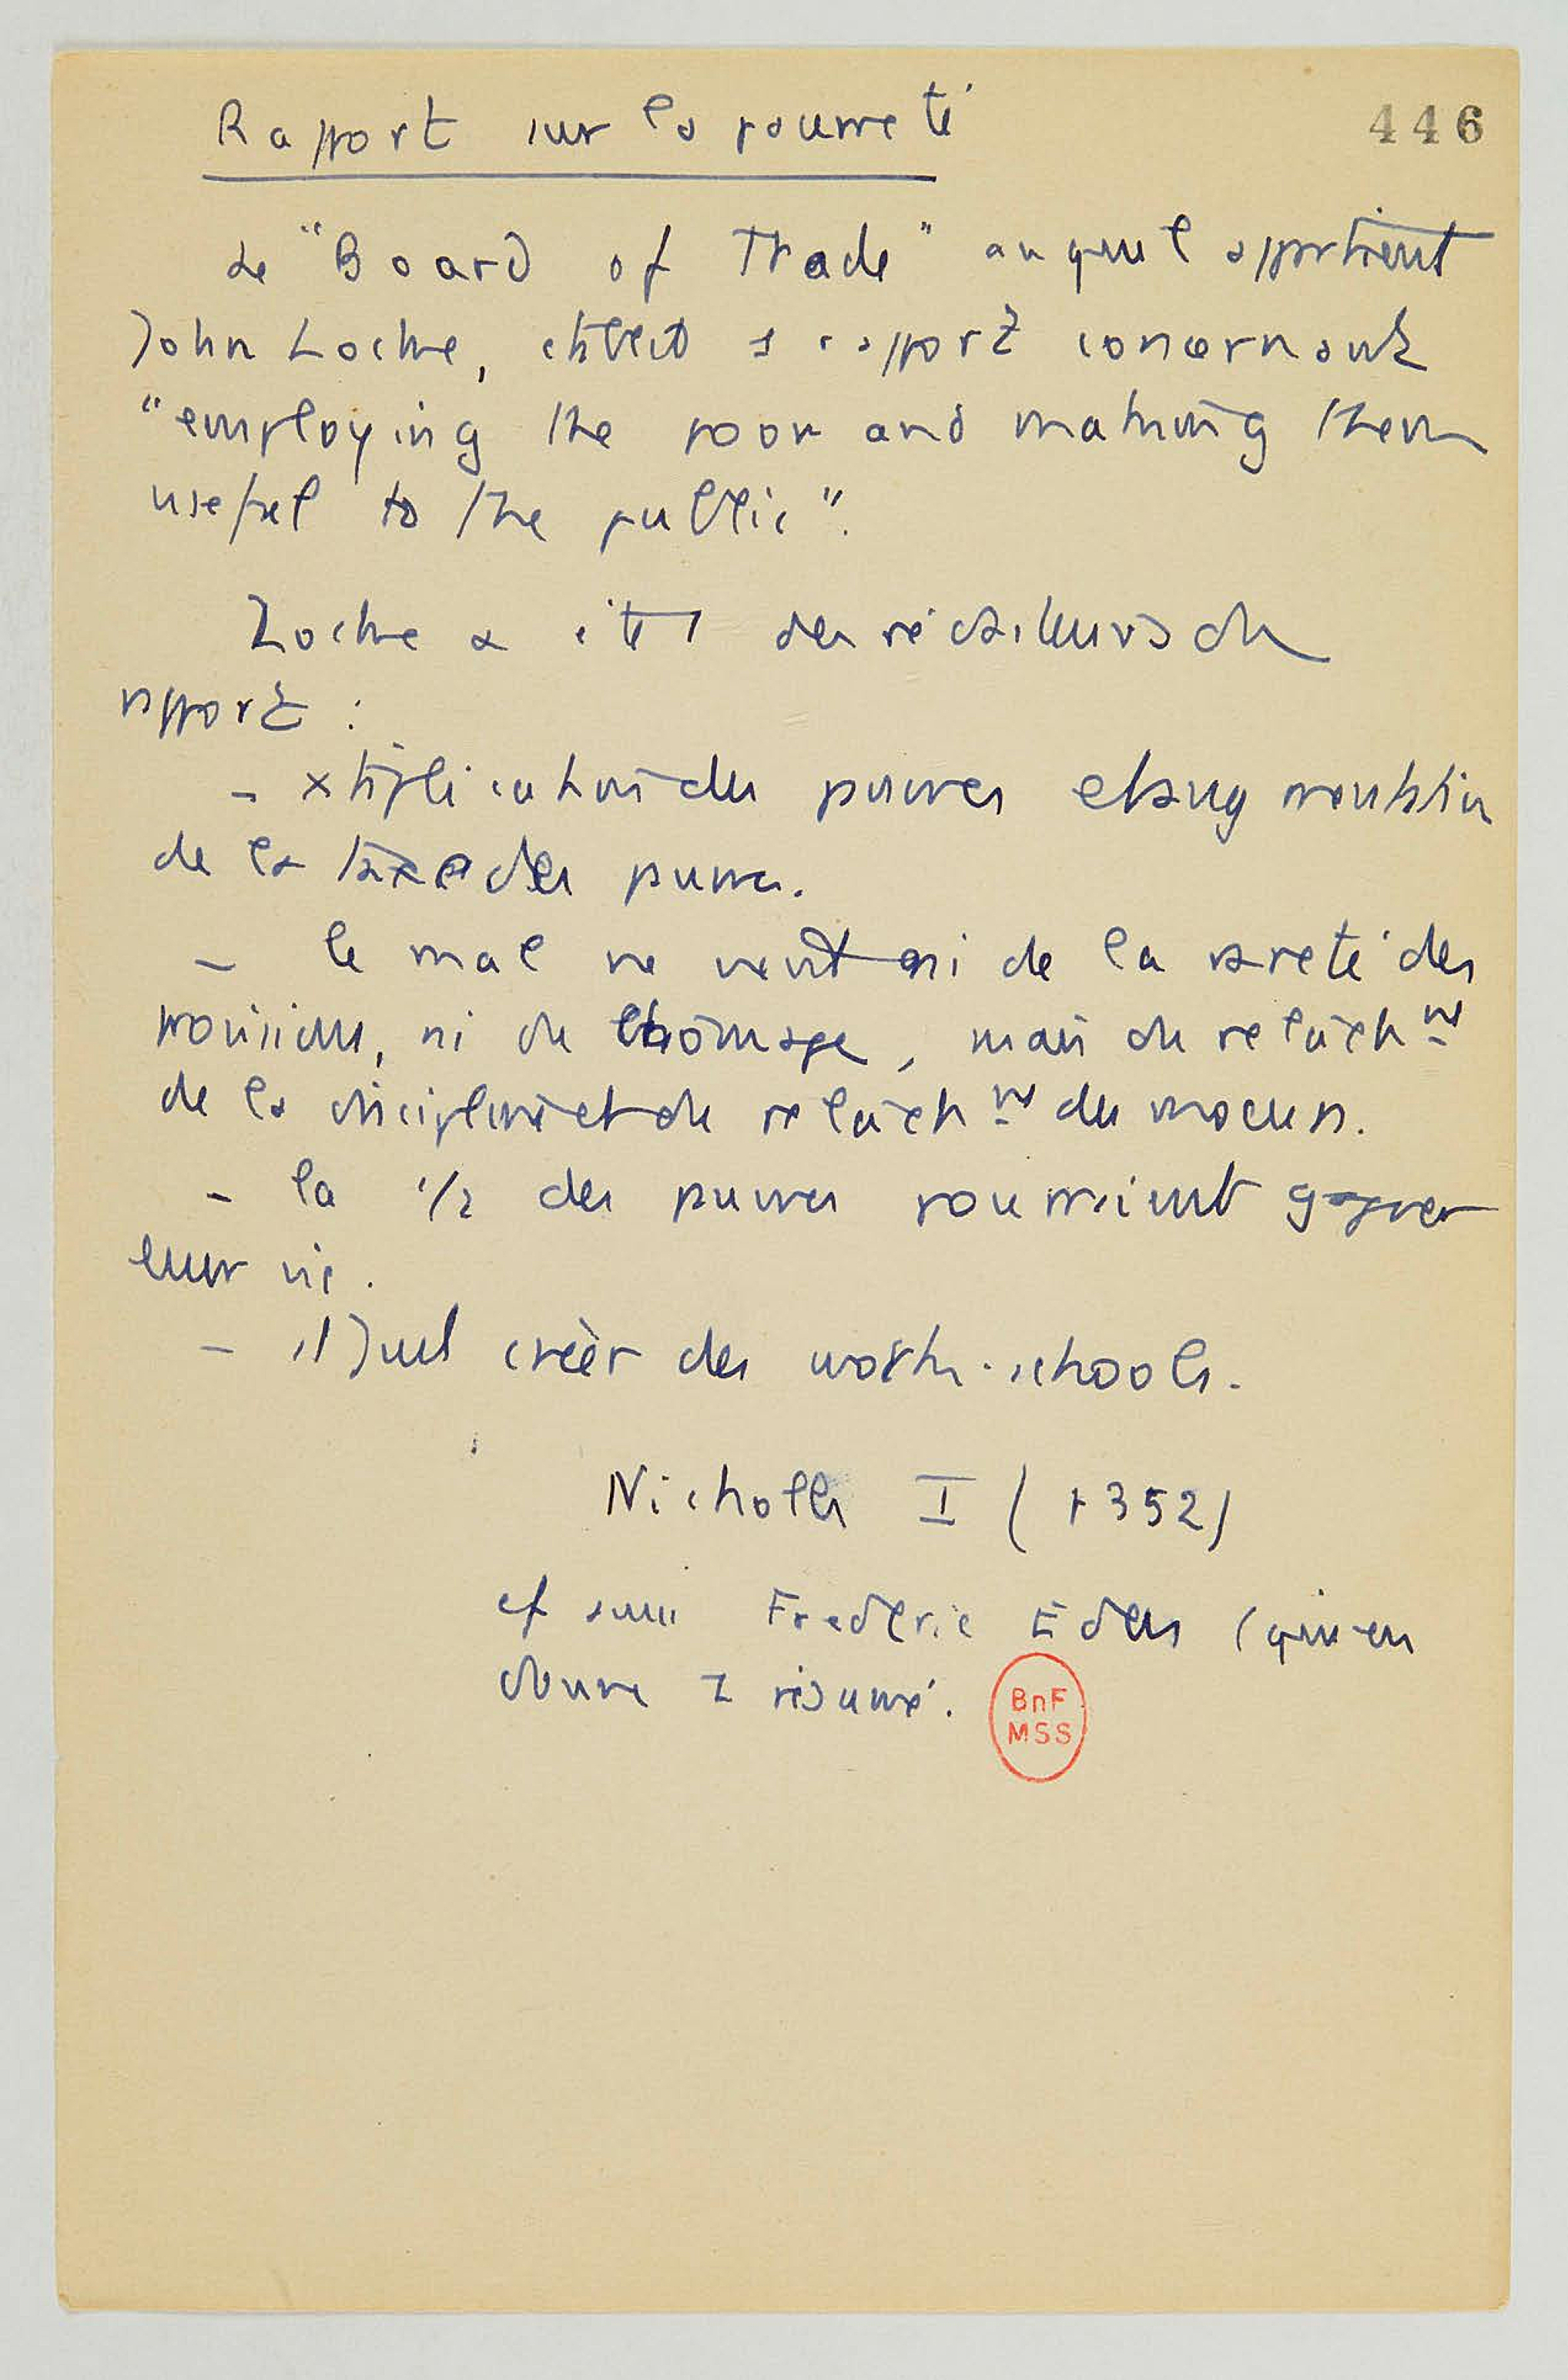 446
Rapport sur la pauvreté
Le "Board of Trade" auquel appartient
John Locke, établit 1 rapport concernant
"employing the poor and making them
useful to the public".
Locke a été 1 des rédacteurs du
rapport :
- xtiplication des pauvres et augmentation
de la taxe des pauvres.
- le mal ne vient ni de la rareté des
provisions, ni du chômage, mais du relâchnt
de la discipline et du relâchnt des moeurs.
- la 1/2 des pauvres pourraient gagner
leur vie.
- il faut créer des work-schools.
Nicholls I (p 352)
cf aussi Frederic Eden (qui en
donne 1 résumé.
BnF
MSS